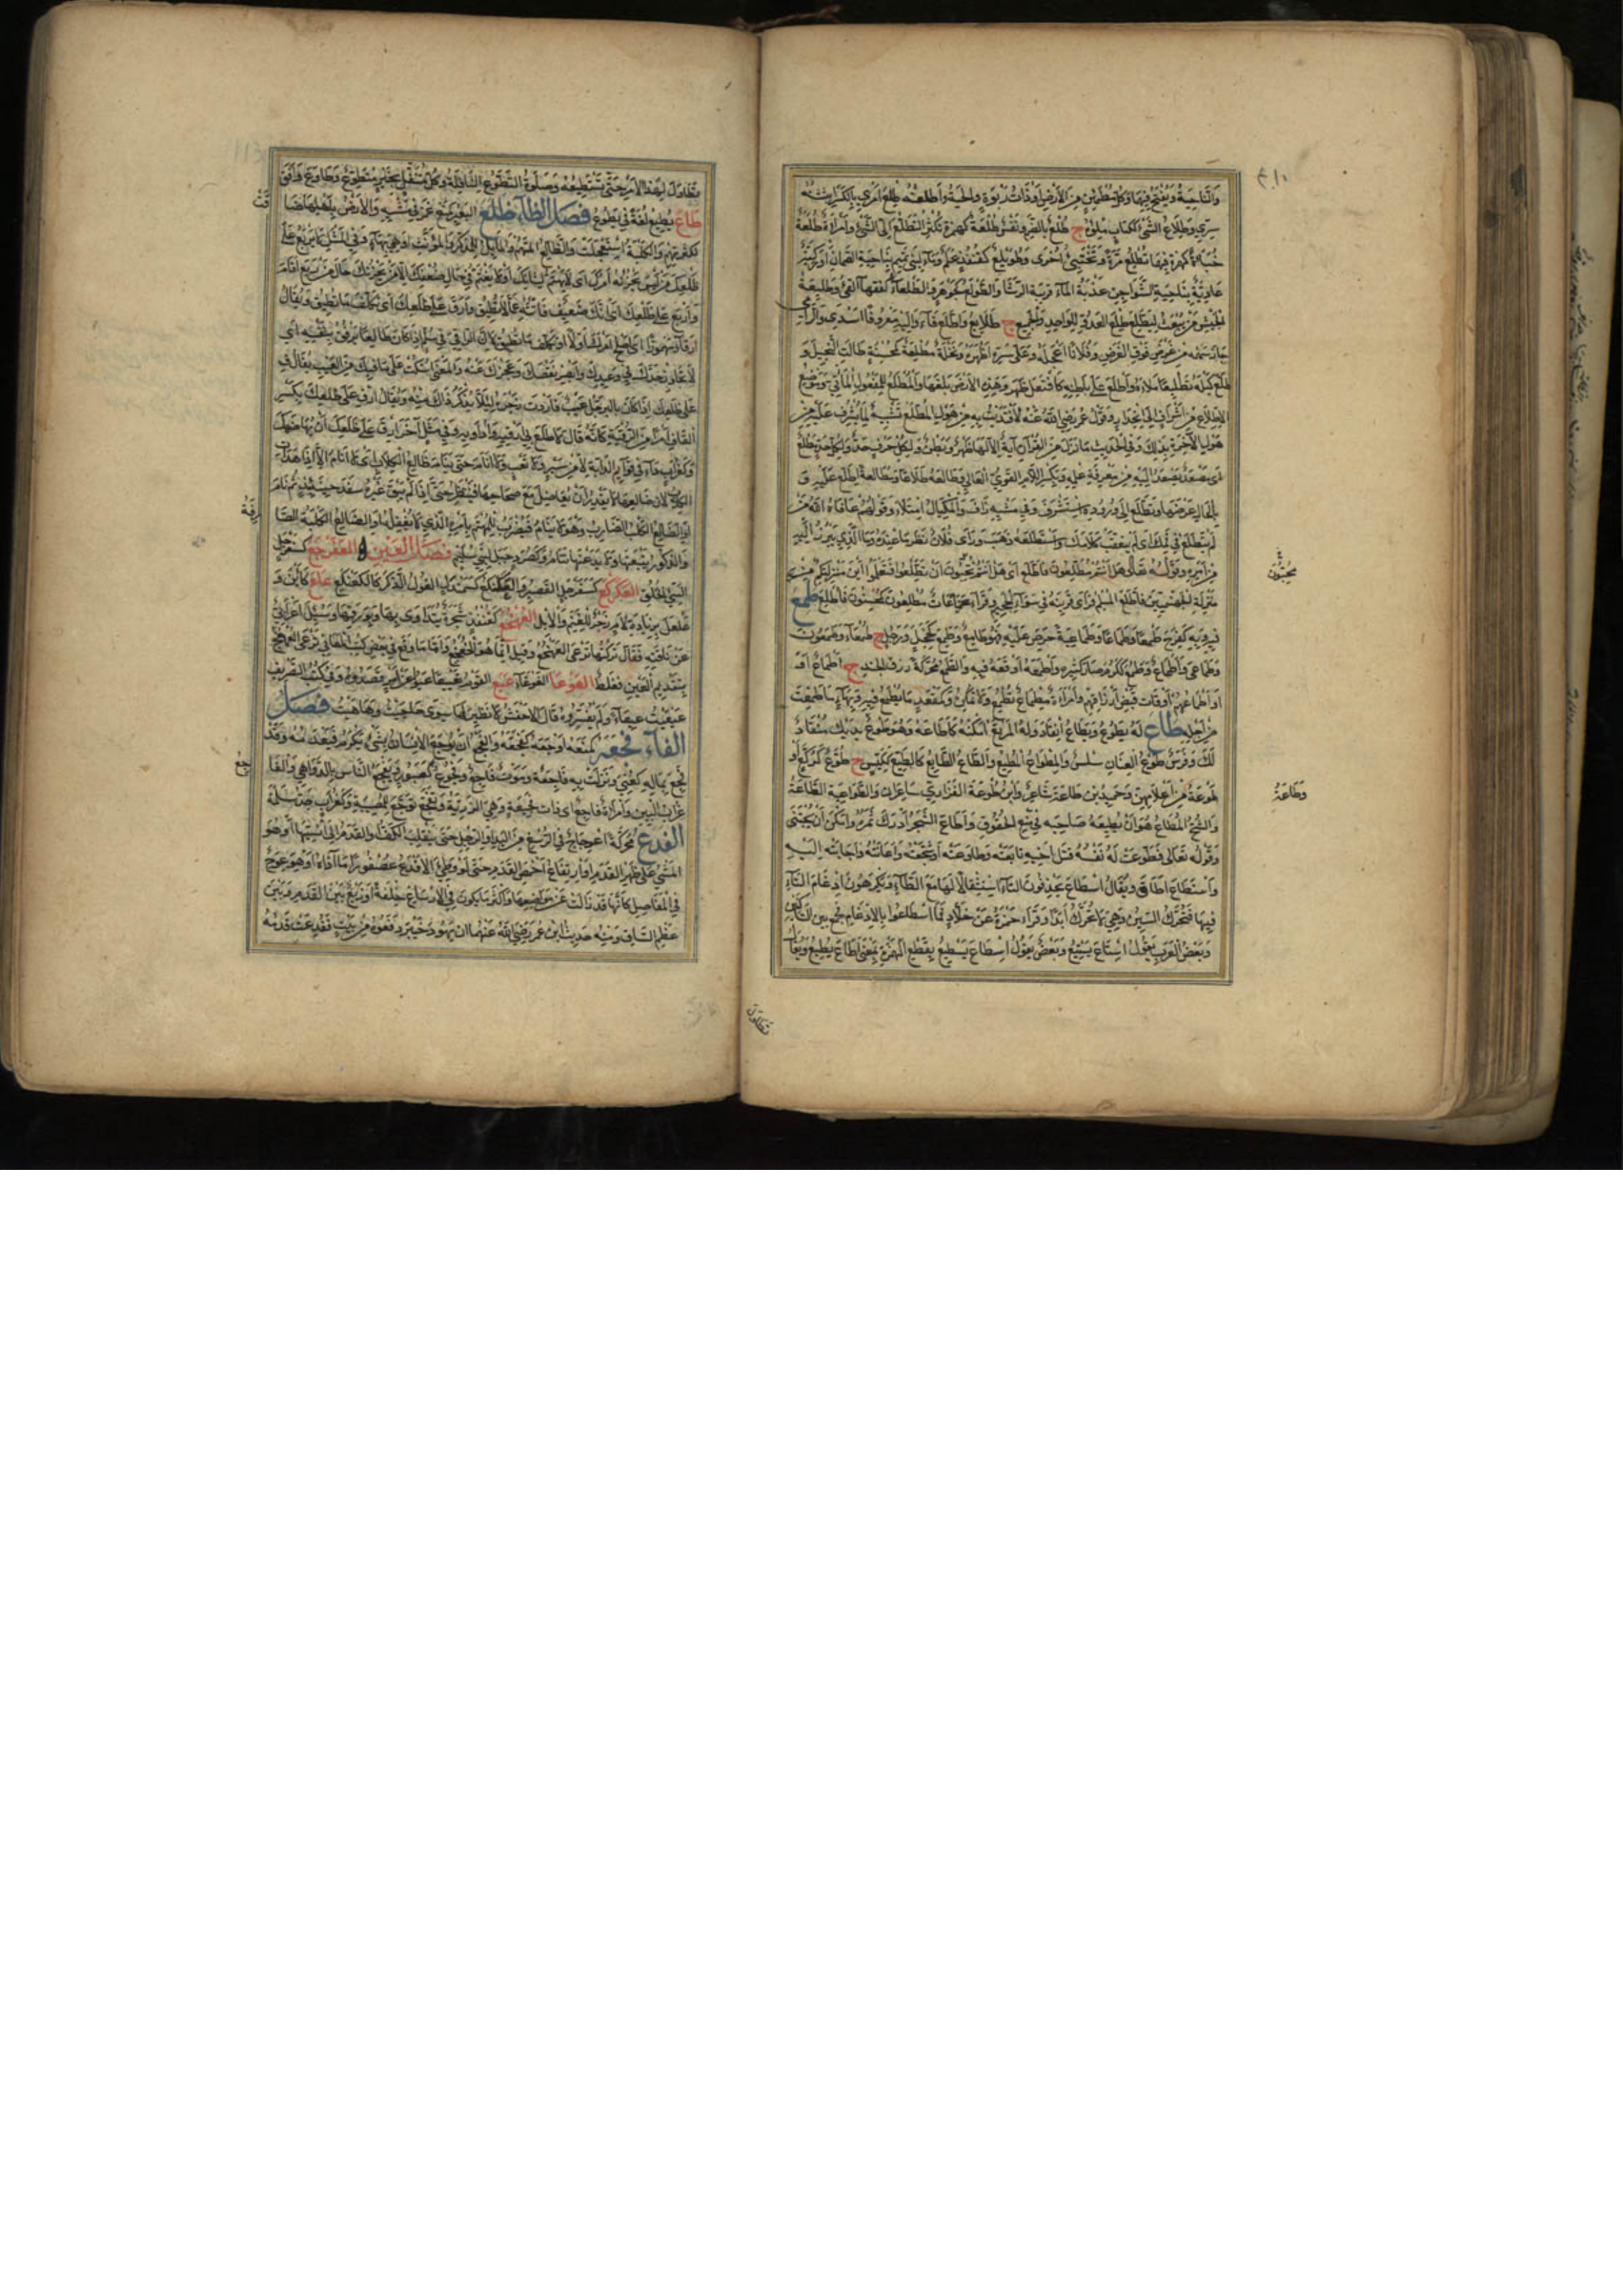 والناحية ويفتح فيهما وكل مطمئن من الأرض أو ذات ربوة والحية وأطلعته طلع أمري بالكسر أبثثته
سري وطلاع الشيء ككتاب ملؤه ج طلع بالضم ونفس طلعة كهمزة تكثر التطلع إلى الشيء وامرأة طلعة
خبأة كهمزة فيهما تطلع مرة وتختبئ أخرى وطويلع كقنفذ علم وماء لبني تميم بناحية الصمان أو ركية
عادية بناحية الشواجن عذبة الماء قريبة الرشاء والطولع كجوهر والطلعاء كفقهاء القيء وطليعة
الجيش من يبعث ليطلع طلع العدو للواحد والجميع ج طلائع وأطلع قاء وإليه معروفا أسدى والرامي
جاز سهمه من فوق الغرض وفلانا أعجله وعلى سره أظهره ونخلة مطلعة كمحسنة طالت النخيل و
طلع كيله تطليعا ملأه واطلع على باطنه كافتعل ظهر وهذه الأرض بلغها والمطلع للمفعول المأتى وموضع
الاطلاع من إشراف إلى انحدار وقول عمر رضي الله عنه لافتديت به من هول المطلع تشبيه لما يشرف عليه من
هول الآخرة بذلك وفي الحديث ما نزل من القرآن آية إلا لها ظهر وبطن ولكل حرف حد ولكل حد مطلع
أي مصعد يصعد إليه من معرفة علمه وبكسر اللام القوي العالي وطالعه طلاعا ومطالعة اطلع عليه و
بالحال عرضها وتطلع إلى وروده استشرف وفي مشيه زاف والمكيال امتلأ وقولهم عافاه الله من
لم يتطلع في فمك أي لم يعقب كلامك واستطلعه ذهب به ورأى فلان نظر ما عنده وما الذي يبرز إليه
من أمره وقوله تعالى هل أنتم مطلعون فاطلع أي هل أنتم تحبون أن تطلعوا فتعلموا أين منزلتكم من
منزلة الجهنميين فاطلع المسلم فرأى قرينه في سواء الجحيم وقرأ جماعات مطلعون كمحسنون فأطلع طمع
فيه وبه كفرح طمعا وطماعا وطماعية حرص عليه فهو طامع وطمع كخجل ورجل ج طمعاء وطمعون
وطماعى وأطماع وطمع ككرم صار كثيره وأطمعه أوقعه فيه والطمع محركة رزق الجند ج أطماع أو
أو أطماعهم أوقات قبض أرزاقهم وامرأة مطماع تطمع ولا تمكن وكمقعد ما يطمع فيه وبهاء ما طمعت
من أجله طاع له يطوع ويطاع انقاد وله المرتع أمكنه كأطاعه وهو طوع يديك منقاد
لك وفرس طوع العنان سلس والمطواع المطيع والطاع الطائع كالطيع ككيس ج طوع كركع و
طوعة من أعلامهن وحميد بن طاعة شاعر وابن طوعة الفزاري شاعران والطواعية الطاعة
والشح المطاع هو أن يطيعه صاحبه في منع الحقوق وأطاع الشجر أدرك ثمره وأمكن أن يجتنى
وقوله تعالى فطوعت له نفسه قتل أخيه تابعته وطاوعته أو شجعته وأعانته وأجابته إليه
واستطاع أطاق ويقال اسطاع يحذفون التاء استثقالا لها مع الطاء ويكرهون إدغام التاء
فيها فتحرك السين وهي لا تحرك أبدا وقرأ حمزة غير خلاد فما اسطاعوا بالإدغام فجمع بين الساكنين
وبعض العرب يقول استاع يستيع وبعض يقول أسطاع يسطيع بقطع الهمزة بمعنى أطاع يطيع ويقال
محبون
وطاعة
تطاول
تطاول لهذا الأمر حتى تستطيعه وصلوة التطوع النافلة وكل متنفل بخير متطوع وطاوع وافق
طاع يطيع لغة في يطوع فصل الظاء ظلع البعير كمنع غمز في مشيه والأرض بأهلها ضاقت
لكثرتهم والكلبة استجعلت والظالع المتهم والمائل للمذكر والمؤنث أو هي بهاء وفي المثل لا يربع على
ظلعك من ليس يحزنه أمرك أي لا يهتم لشأنك إلا من يحزنه حالك من ربع أقام
واربع على ظلعك أي إنك ضعيف فانته عما لا تطيقه وارق على ظلعك أي تكلف ما تطيق ويقال
ارقأ مهموزا أي أصلح أمرك أولا أو تكلف ما تطيق لأن الراقي في سلم إذا كان ظالعا يرفق بنفسه أي
لا تجاوز حدك في وعيدك وأبصر نقصك وعجزك عنه والمعنى اسكت على ما فيك من العيب يقال ق
على ظلعك إذا كان بالرجل عيب فأردت زجره لئلا يذكر ذلك منه ويقال ارق على ظلعك بكسر
القاف أمرا من الرقية كأنه قال لا ظلع بي أرقيه وأداويه وفي مثل آخر ارق على ظلعك أن يهاضك
وكغراب داء في قوائم الدابة لا من سير ولا تعب ولا أنام حتى ينام ظالع الكلاب أي لا أنام إلا إذا هدأت
الكلاب لأن ظالعها لا يقدر أن يعاظل مع صحاحها فينتظر حتى إذا لم يبق غيره سفد حينئذ ثم نام
أو الظالع الكلب الصارف وهو لا ينام فيضرب للمهتم بأمره الذي لا يغفله أو الظالع الكلبة الصارف
والذكور يتبعنها ولا يدعنها تنام وكصرد جبل لبني سليم فصل العين العفرجع كسفرجل
السيئ الخلق العكركع كسفرجل القصير والعكنكع كسمندل الغول الذكر كالكعنكع علع كأين و
علعل بمزيادة لام زجر للغنم والإبل العهخع كقنفذ شجرة يتداوى بها وبورقها وسئل أعرابي
عن ناقته فقال تركتها ترعى العهخع وقيل إنما هو الخعخع وأما ما وقع في بعض كتب المعاني ترعى الهعخع
بتقديم العين فغلط العوعاء الغوغاء عيع القوم تعييعا عيوا عن أمر قصدوه وفي كتب التصريف
عيعيت عيعاء ولم يفسروه قال الأخفش لا نظير لها سوى حاحيت وهاهيت فصل
الفاء فجعه كمنعه أوجعه كفجعه والفجع أن يوجع الإنسان بشيء يكرم عليه فيعدمه وقد
فجع بماله كعني ونزلت به فاجعة وموت فاجع وفجوع كصبور يفجع الناس بالدواهي والفاجع
غراب البين وامرأة فاجع أي ذات فجيعة وهي الرزية وتفجع توجع للمصيبة وكغراب جد سلمة
الفدع محركة اعوجاج في الرسغ من اليد أو الرجل حتى ينقلب الكف أو القدم إلى إنسيها أو هو
المشي على ظهر القدم أو ارتفاع أخمص القدم حتى لو وطئ الأفدع عصفورا ما آذاه أو هو عوج
في المفاصل كأنها قد زالت عن مواضعها وأكثر ما يكون في الأرساغ خلقة أو زيغ بين القدم وبين
عظم الساق ومنه حديث ابن عمر رضي الله عنهما أن يهود خيبر دفعوه من بيت ففدعت قدمه